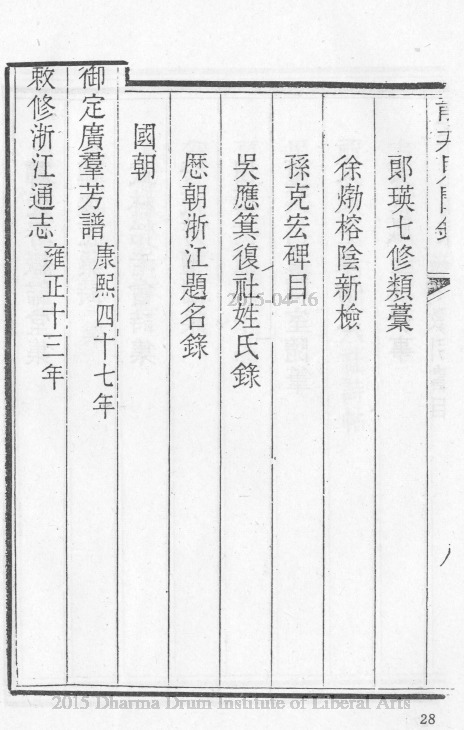 郎瑛七修類藁
徐𤊹榕陰新檢
孫克宏碑目
吳應箕復社姓氏錄
歷朝浙江題名錄
國朝
御定廣羣芳譜 康熙四十七年
敕修浙江通志 雍正十三年
2015-04-16
2015 Dharma Drum Institute of Liberal Arts
28